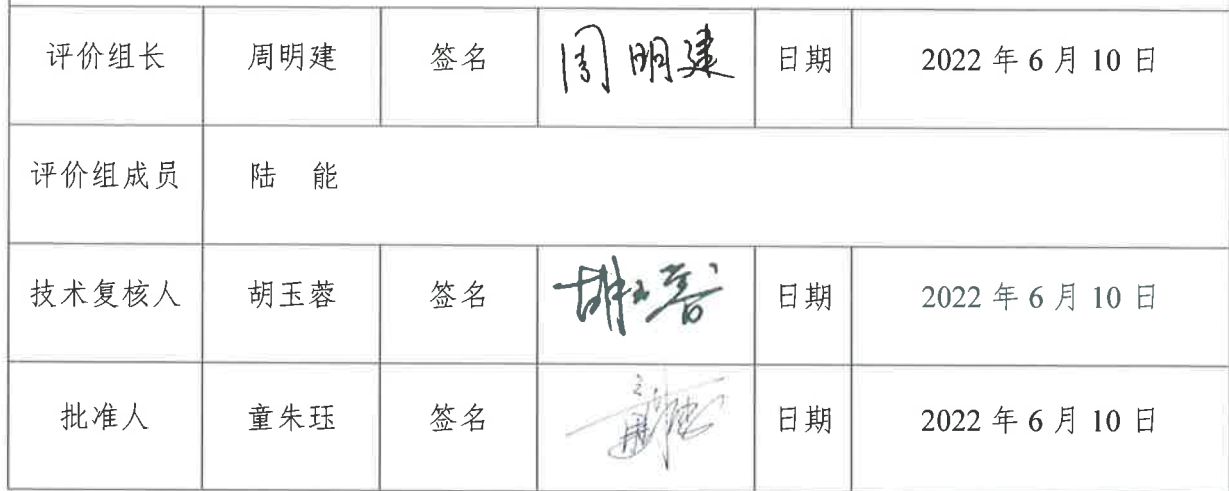 评价组长 周明建 签名 周明建 日期 2022 年 6 月 10 日
评价组成员 陆 能
技术复核人 胡玉蓉 签名 胡玉蓉 日期 2022 年 6 月 10 日
批准人 童朱珏 签名 日期 2022 年 6 月 10 日